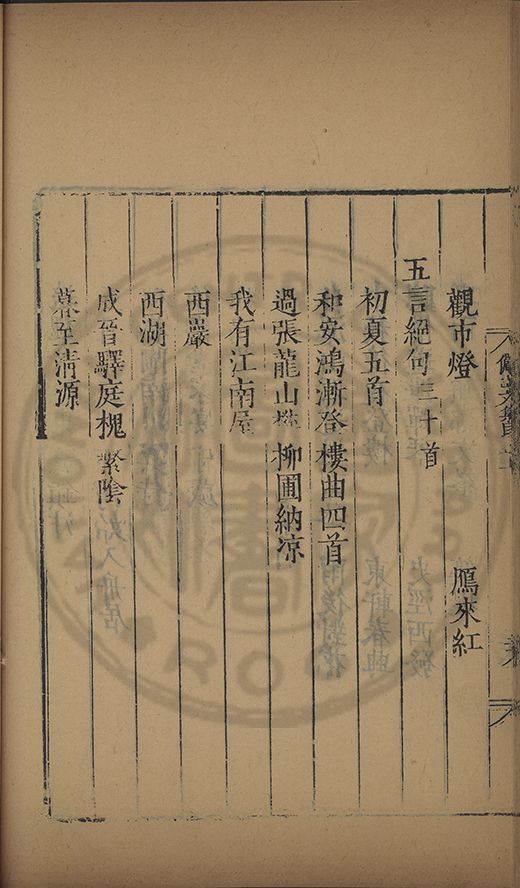 觀市燈 鴈來紅
五言絕句三十首
初夏五首
和安鴻漸登樓曲四首
過張龍山 柳圃納凉
我有江南屋
西巖
西湖
咸晉驛庭槐繁陰
暮至清源